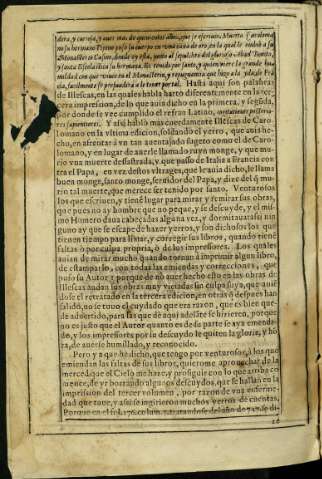 dera, y curiosa, y aun mas de quinientos años, que se escriuio. Muerto
no su hermano Pipino puso su cuerpo en vna caxa de oro, en la qual le embió a su
Monasterio Casino, donde oy està, junto al sepulcro del glorioso Abad Benito,
y santa Escolastica su hermana. Es tenido por santo, y quien viere la grande hu-
mildad con que viuio en el Monasterio, y
cia, facilmente se persuadirà a le tener por tal. Hasta aqui son palabras
de Illescas, en las quales habla harto diferentemente en la ter-
cera impression, de lo que auia dicho en la primera, y segũda,
por donde se ve cumplido el refran Latino,
res sapientiores. Y assi habló mas cuerdamente Illescas de Caro-
lomano en la vltima edicion, soldando el yerro, que auia he-
cho, en afrentar a vn tan auentajado sugeto como el de Caro-
lomano, y en lugar de auerle llamado ruyn monge, y que mu-
rio vna muerte desastrada, y que passo de Italia a Francia con-
tra el Papa, en vez destos vltrages, que le auia dicho, le llama
buen monge, santo monge, seruidor del Papa, y dize del q̃ mu-
rio tal muerte, que merece ser tenido por santo. Venturosos
los que escriuen, y tienẽ lugar para mirar, y remirar sus obras,
que pues no ay hombre que no peque, y se descuyde, y el mis-
mo Homero daua cabeçadas alguna vez, y dormitaua:assi nin
guno ay que se escape de hazer yerros, y son dichosos los que
tienen tiempo para limar, y corregir sus libros, quando tienẽ
faltas ò por culpa propria, ò de los impressores. Los quales
auian de mirar mucho quando tornan à imprimir algun libro,
de estamparlo, con todas las enmiendas y correcciones, que
puso su Autor; porque de no auer hecho esto en las obras de
Illescas andan sus obras muy viciadas sin culpa suya, que auiẽ
dose el retratado en la tercera edicion, en otras q̃ despues han
salido, no se tuuo el cuydado que era razon, que es bien que-
de aduertido, para las que de aqui adelãte se hizieren, porque
no es justo que el Autor quanto es de su parte se aya enmenda-
do, y los impressores por su descuydo le quiten la gloria, y hõ
ra, de auerse humillado, y reconocido.
Pero ya que he dicho, que tengo por venturosos, à los que
emiendan las faltas de sus libros, quierome aprouechar de la
merced que el Cielo me haze, y proseguir en lo que arriba co-
mence, de yr borrando algunos descuydos, que se hallan en la
impression del tercer volumen, por razon de vna enferme-
dad que tuue, y assi se ingirieron muchos yerros de cuentas.
Porque en el fol. 176. colum. tratandose del año de 747. se di-